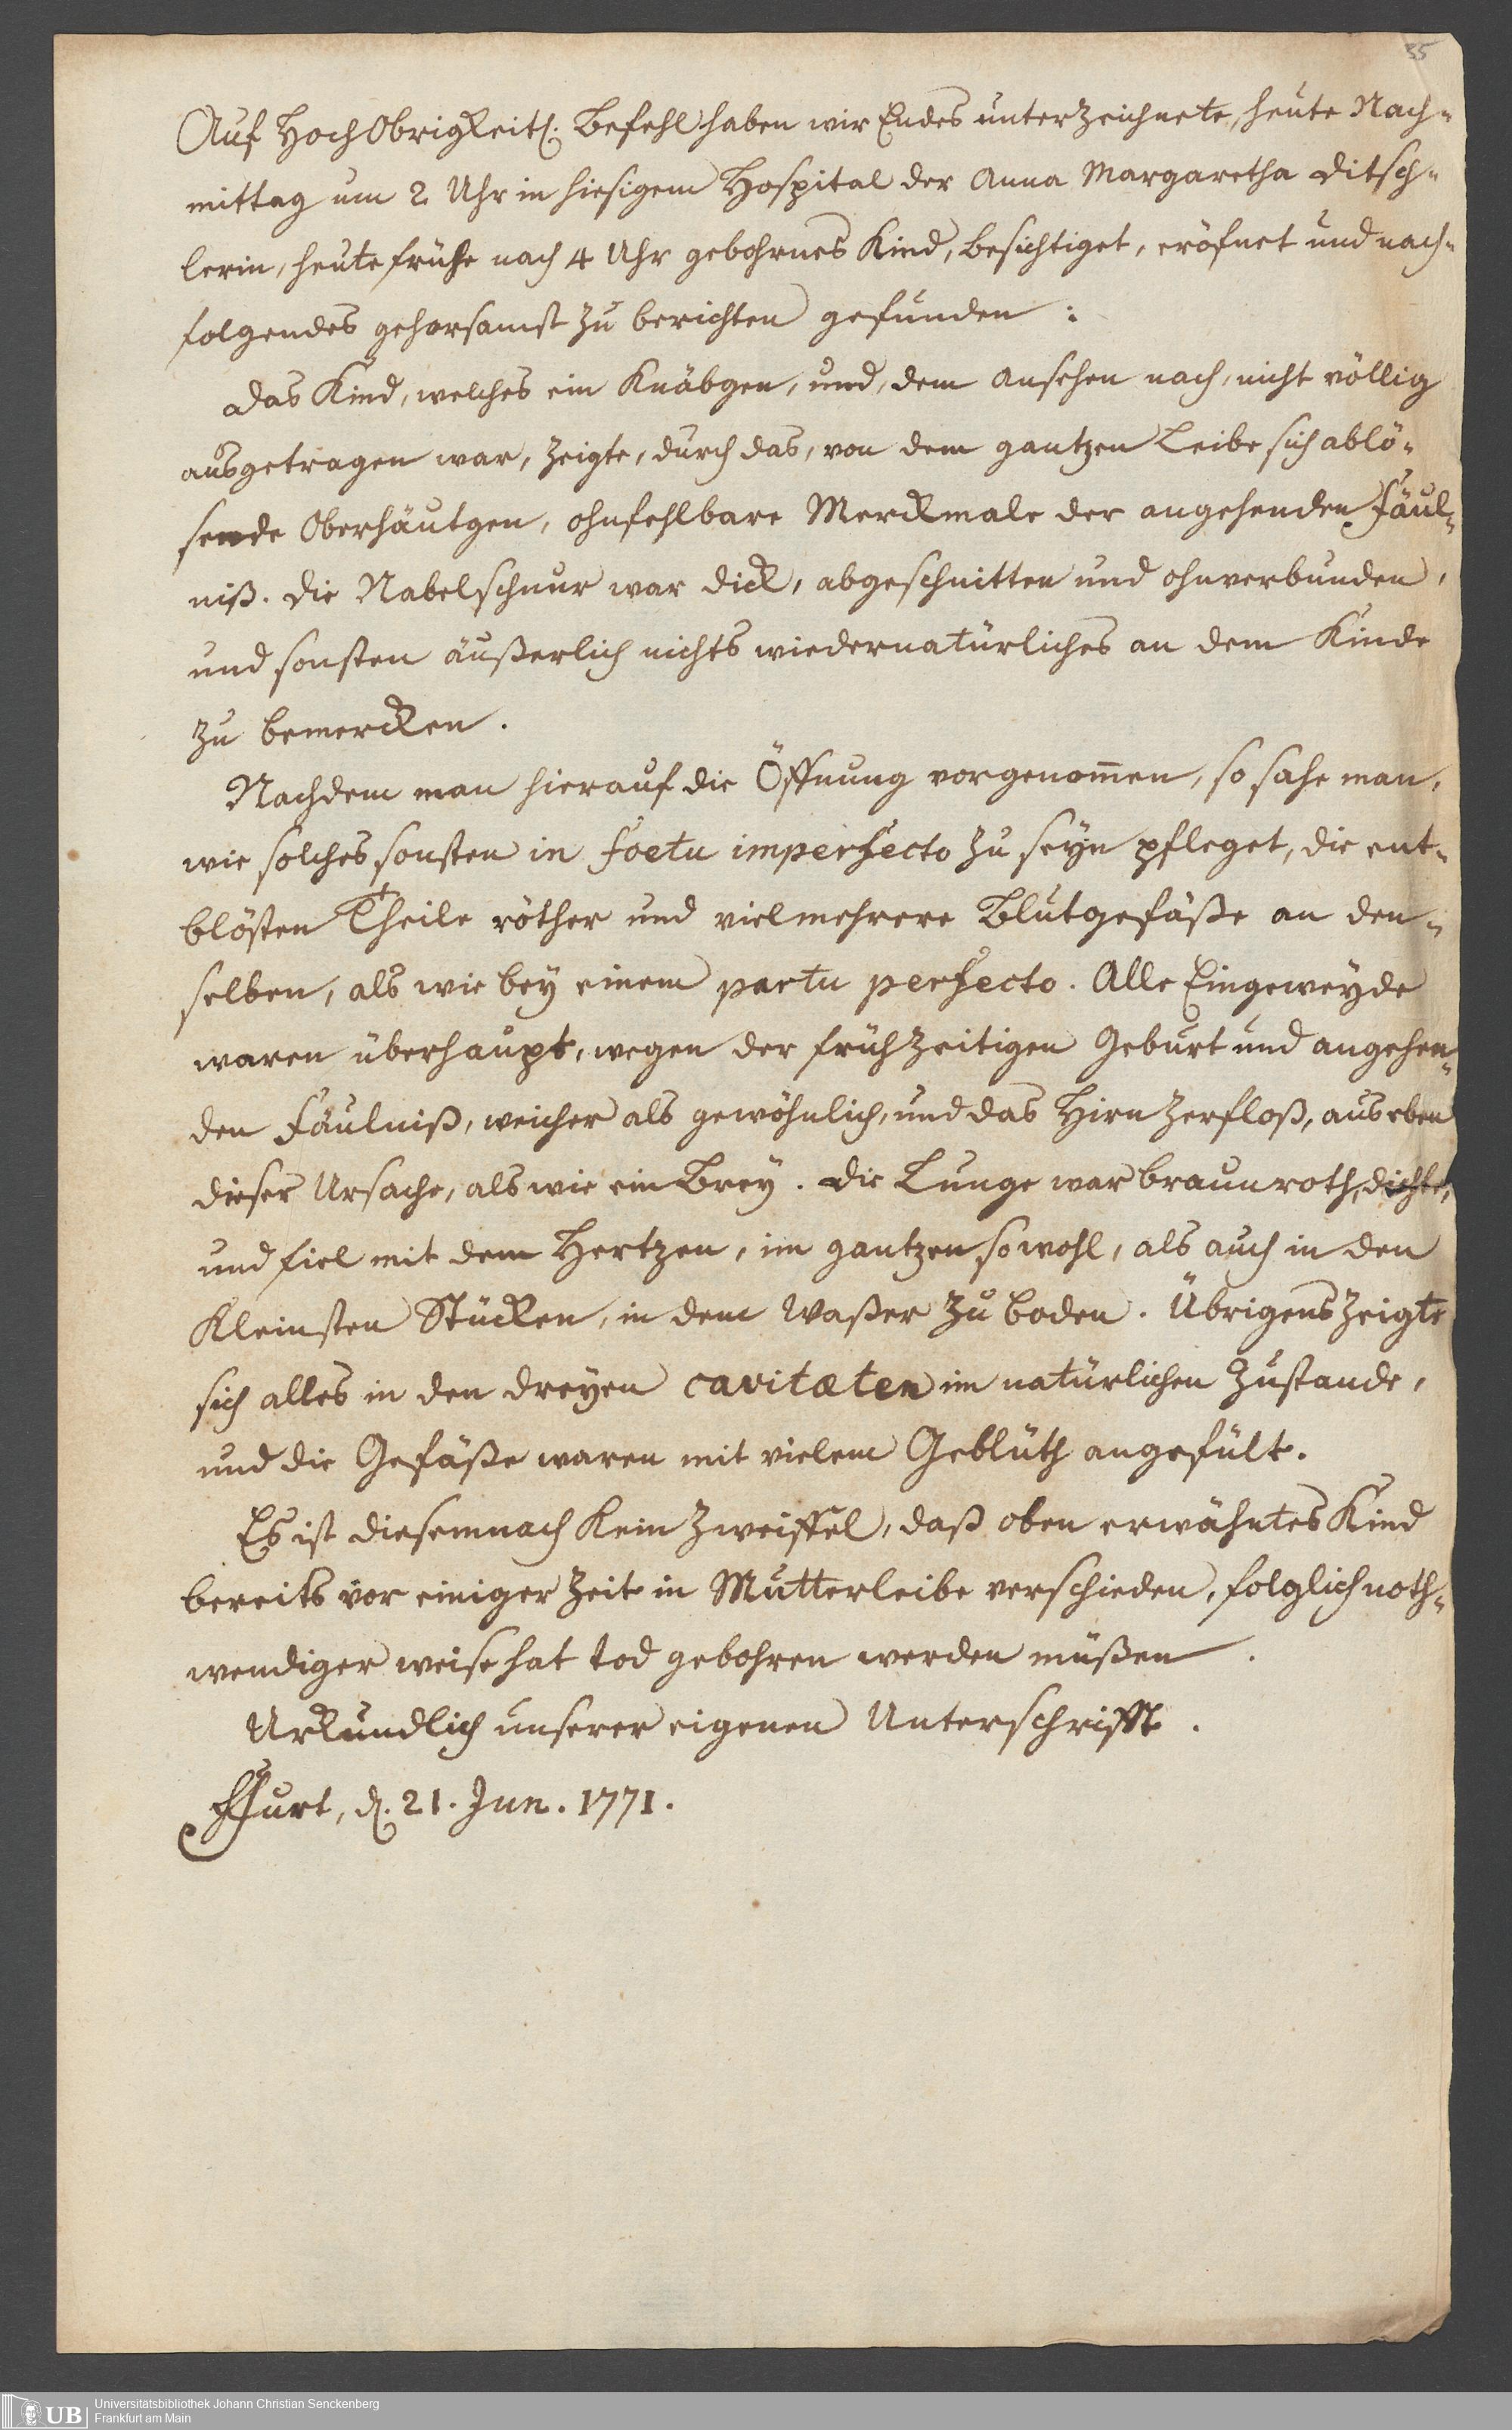 35
Auf HochObrigkeitl. Befehl haben wir Endes unterzeichnete, heute Nach-
mittag um 2 Uhr in hiesigem Hospital der Anna Margaretha Ditsch-
lerin, heute frühe nach 4 Uhr gebohrnes Kind, besichtiget, eröfnet und nach-
folgendes gehorsamst zu berichten gefunden:
Das Kind, welches ein Knäbgen, und, dem Ansehen nach, nicht völlig
ausgetragen war, zeigte, durch das, von dem gantzen Leibe sich ablö-
sende Oberhäutgen, ohnfehlbare Merckmale der angehenden Fäul-
niß. Die Nabelschnur war dick, abgeschnitten und ohnverbunden,
und sonsten äußerlich nichts wiedernatürliches an dem Kinde
zu bemercken.
Nachdem man hierauf die Öffnung vorgenom̅en, so sahe man,
wie solches sonsten in foetu imperfecto zu seyn pfleget, die ent-
blösten Theile röther und viel mehrere Blutgefäße an den-
selben, als wie bey einem partu perfecto. Alle Eingeweyde
waren überhaupt, wegen der frühzeitigen Geburt und angehen-
den Fäulniß, weicher als gewöhnlich, und das Hirn zerfloß, aus eben
dieser Ursache, als wie ein Brey. Die Lunge war braunroth, dichte,
und fiel mit dem Hertzen, im gantzen sowohl, als auch in den
Kleinsten Stücken, in dem Waßer zu boden. Übrigens zeigte
sich alles in den dreyen cavitæten im natürlichen Zustande,
und die Gefäße waren mit vielem Geblüth angefült.
Es ist diesemnach Kein Zweiffel, daß oben erwähntes Kind
bereits vor einiger Zeit in Mutterleibe verschieden, folglich noth-
wendiger weise hat tod gebohren werden müßen.
Urkundlich unserer eigenen Unterschrifft.
Ffurt, d. 21. Jun. 1771.
UB
Universitätsbibliothek Johann Christian Senckenberg
Frankfurt am Main